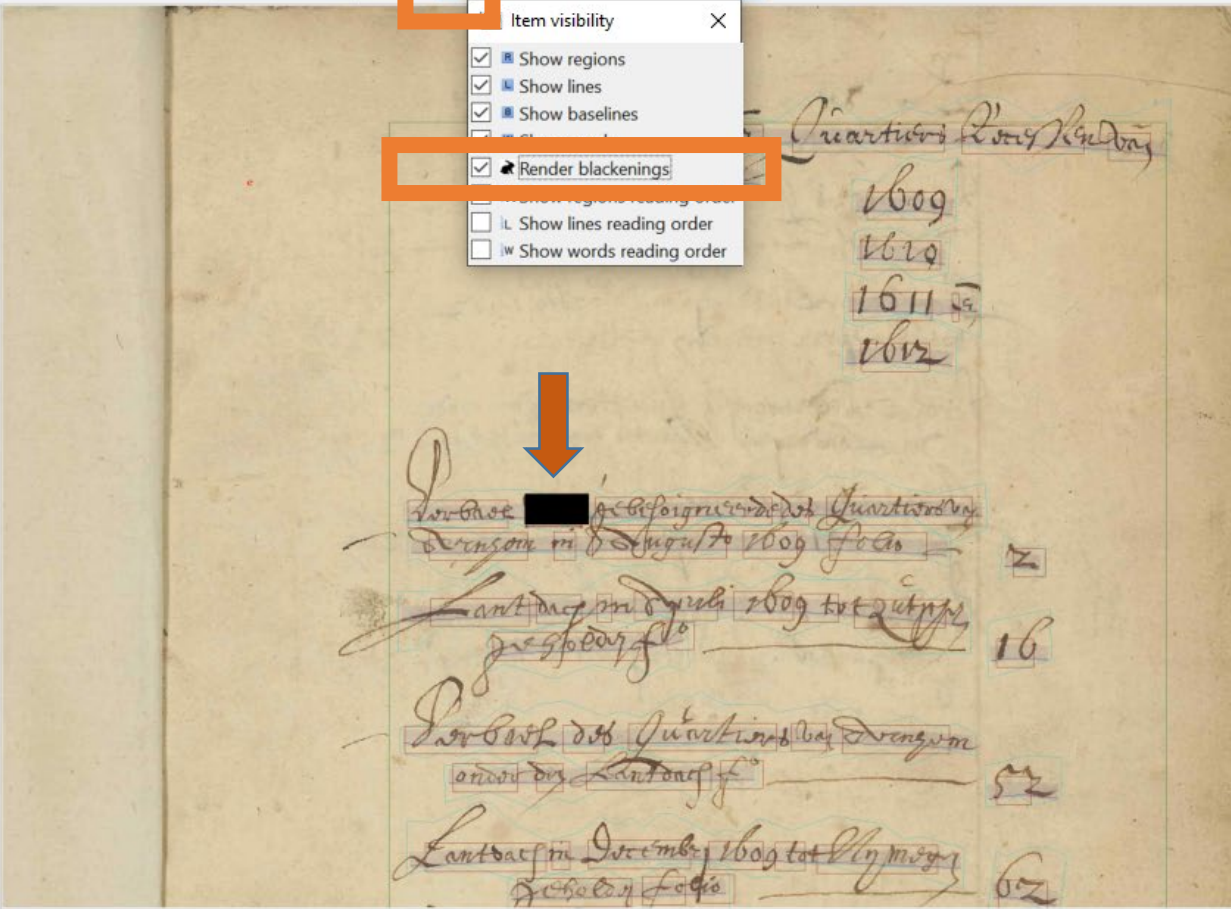 Item visibility
Show regions
Show lines
Show baselines
Render blackenings
Show regions reading order
Show lines reading order
Show words reading order
Quartiers Recessen van
1609
1610
1611 en
1612
Verbael gebesoigneerde des Quartiers van
in Augusto 1609 folio 2
Lantdach in Aprili 1609 tot Zutphen
geholden fo 16
Verbael des Quartiers van
onder den Lantdach fo 52
Lantdach in Decembri 1609 tot Nymegen
geholden folio 62